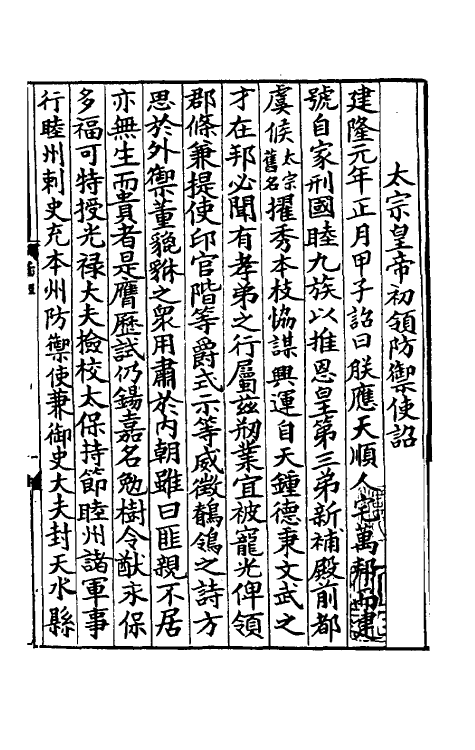 太宗皇帝初領防禦使詔
建隆元年正月甲子詔曰朕應天順人宅萬邦而建
號自家刑國睦九族以推恩皇第三弟新補殿前都
虞候太宗舊名擢秀本枝協謀興運自天鍾德秉文武之
才在邦必聞有孝弟之行屬茲刱業宜被寵光俾領
郡條兼提使印官階等爵式示等威徵鶺鴒之詩方
思於外禦董貔貅之衆用肅於內朝雖曰匪親不居
亦無生而貴者是膺歷試仍錫嘉名勉樹令猷永保
多福可特授光禄大夫檢校太保持節睦州諸軍事
行睦州刺史充本州防禦使兼御史大夫封天水縣